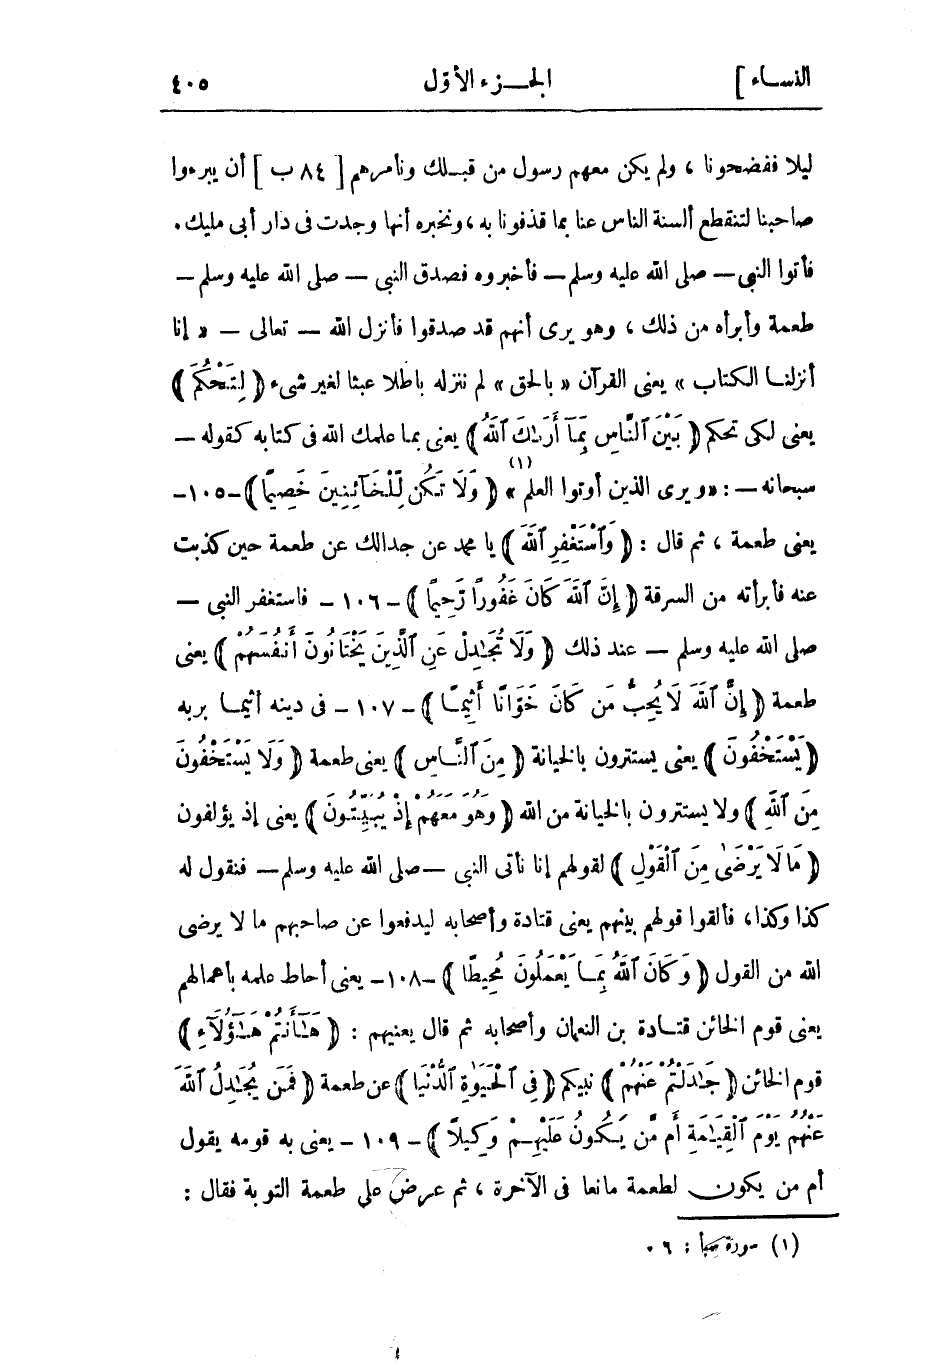 النساء ] الجزء الأوّل ٤٠٥
ليلا ففضحونا ، ولم يكن معهم رسول من قبلك ونأمرهم [ ٨٤ ب ] أن يبرءوا
صاحبنا لتنقطع ألسنة الناس عنا بما قذفونا به ، ونخبره أنها وجدت فى دار أبى مليك .
فأتوا النبى — صلى الله عليه وسلم — فأخبروه فصدق النبى — صلى الله عليه وسلم —
طعمة وأبرأه من ذلك ، وهو يرى أنهم قد صدقوا فأنزل الله — تعالى — « إنا
أنزلنا الكتاب » يعنى القرآن « بالحق » لم ننزله باطلا عبثا لغير شىء ﴿ لِتَحْكُمَ ﴾
يعنى لكى تحكم ﴿ بَيْنَ ٱلنَّاسِ بِمَآ أَرَىٰكَ ٱللَّهُ ﴾ يعنى بما علمك الله فى كتابه كقوله —
سبحانه — : « ويرى الذين أوتوا العلم » (١) ﴿ وَلَا تَكُن لِّلْخَآئِنِينَ خَصِيمًا ﴾ -١٠٥-
يعنى طعمة ، ثم قال : ﴿ وَٱسْتَغْفِرِ ٱللَّهَ ﴾ يا محمد عن جدالك عن طعمة حين كذبت
عنه فأبرأته من السرقة ﴿ إِنَّ ٱللَّهَ كَانَ غَفُورًا رَّحِيمًا ﴾ - ١٠٦ - فاستغفر النبى —
صلى الله عليه وسلم — عند ذلك ﴿ وَلَا تُجَٰدِلْ عَنِ ٱلَّذِينَ يَخْتَانُونَ أَنفُسَهُمْ ﴾ يعنى
طعمة ﴿ إِنَّ ٱللَّهَ لَا يُحِبُّ مَن كَانَ خَوَّانًا أَثِيمًا ﴾ - ١٠٧ - فى دينه أثيما بربه
﴿ يَسْتَخْفُونَ ﴾ يعنى يستترون بالخيانة ﴿ مِنَ ٱلنَّاسِ ﴾ يعنى طعمة ﴿ وَلَا يَسْتَخْفُونَ
مِنَ ٱللَّهِ ﴾ ولا يستترون بالخيانة من الله ﴿ وَهُوَ مَعَهُمْ إِذْ يُبَيِّتُونَ ﴾ يعنى إذ يؤلفون
﴿ مَا لَا يَرْضَىٰ مِنَ ٱلْقَوْلِ ﴾ لقولهم إنا نأتى النبى — صلى الله عليه وسلم — فنقول له
كذا وكذا، فألقوا قولهم بينهم يعنى قتادة وأصحابه ليدفعوا عن صاحبهم ما لا يرضى
الله من القول ﴿ وَكَانَ ٱللَّهُ بِمَا يَعْمَلُونَ مُحِيطًا ﴾ -١٠٨- يعنى أحاط علمه بأعمالهم
يعنى قوم الخائن قتادة بن النعمان وأصحابه ثم قال يعنيهم : ﴿ هَٰٓأَنتُمْ هَٰٓؤُلَآءِ ﴾
قوم الخائن ﴿ جَٰدَلْتُمْ عَنْهُمْ ﴾ نبيكم ﴿ فِى ٱلْحَيَوٰةِ ٱلدُّنْيَا ﴾ عن طعمة ﴿ فَمَن يُجَٰدِلُ ٱللَّهَ
عَنْهُمْ يَوْمَ ٱلْقِيَٰمَةِ أَم مَّن يَكُونُ عَلَيْهِمْ وَكِيلًا ﴾ - ١٠٩ - يعنى به قومه يقول
أم من يكون لطعمة مانعا فى الآخرة ، ثم عرض على طعمة التوبة فقال :
(١) سورة سبأ : ٠٦